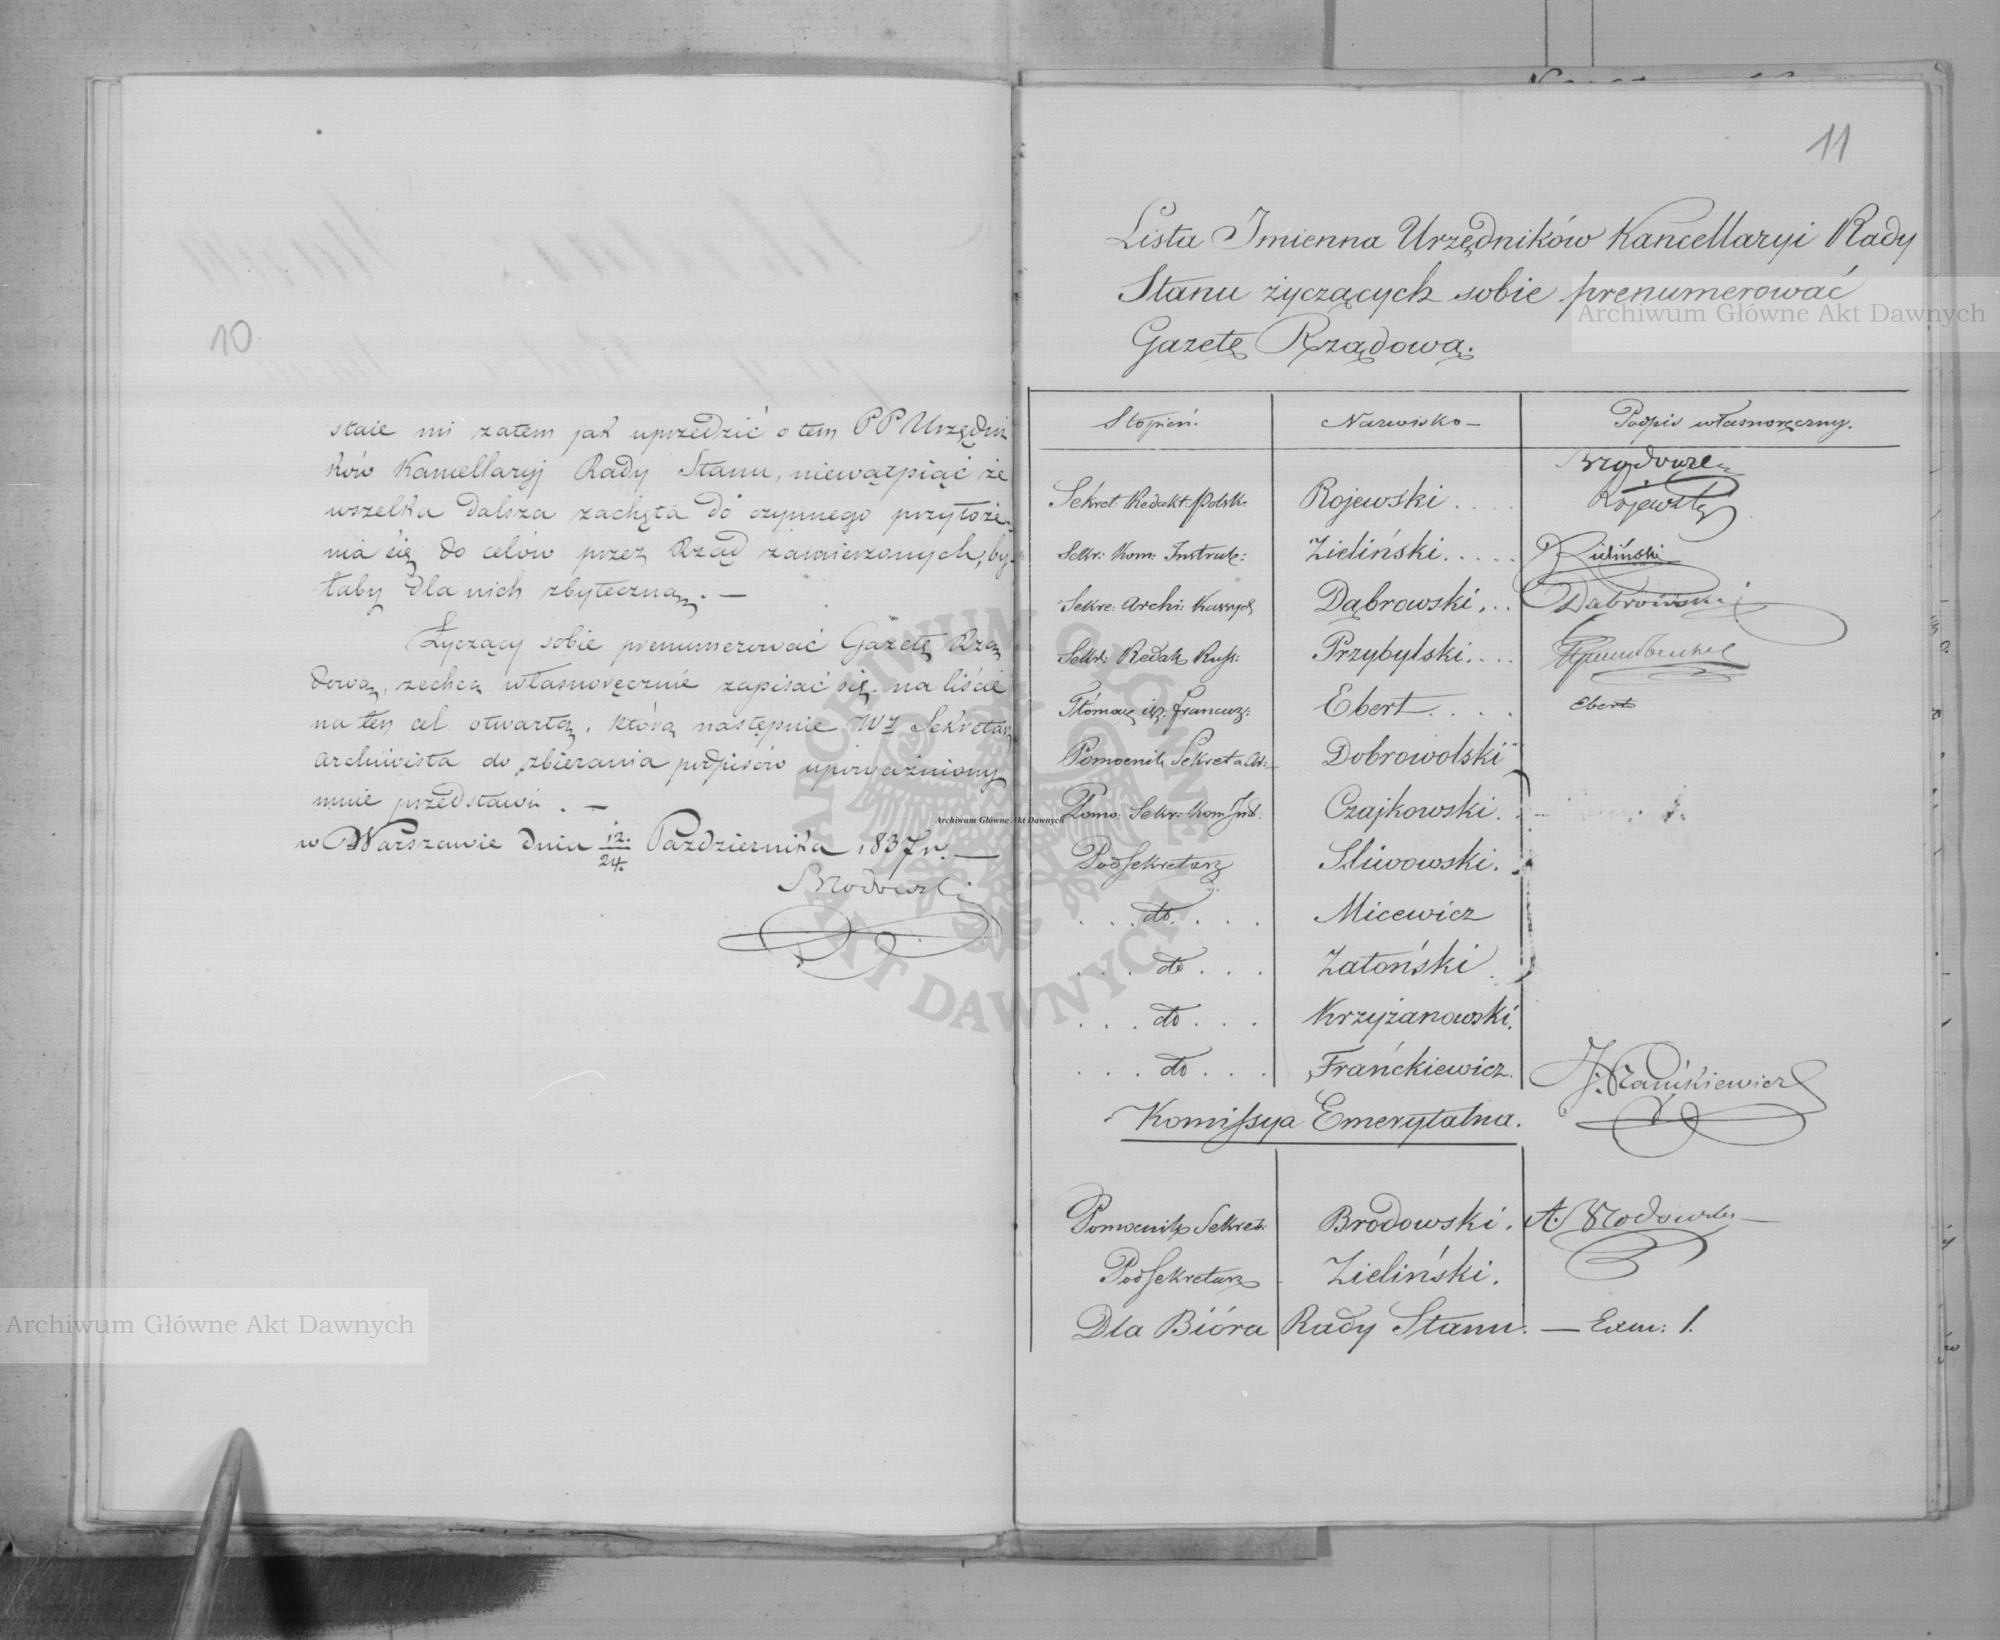 10
staie mi zatem jak uprzedzić o tem PP Urzędni
ków Kancellaryj Rady Stanu, niewątpiąć że
wszelka dalsza zachęta do czynnego przyłoże-
nia się do celów przez Rząd zamierzonych, by-
łaby dla nich zbyteczną. —
Życzący sobie prenumerować Gazetę Rzą
dową, zechcą własnoręcznie zapisać się na liście
na ten cel otwartą, którą następnie Wż Sekretarz
Archiwista do zbierania podpisów upoważniony
mnie przedstawi. —
w Warszawie dnia 12./24. Października 1837 r. —
Brodowski
11
Lista Imienna Urzędników Kancellaryi Rady
Stanu życzących sobie prenumerować
Gazetę Rządową.
Stopień. Nazwisko — Podpis własnoręczny.
Brodowski
Sekret: Redakt: Polsk: Rojewski .... Rojewski
Sekr: Kom: Instruk: Zieliński ..... Zieliński
Sekre: Archi: Kassyer Dąbrowski ... Dąbrowski
Sekr: Redak Russ: Przybylski ....
Tłomacz ięz: francuz: Ebert .... Ebert
Pomocnik Sekreta Ar: Dobrowolski
Pomo: Sekr: Kom Inst: Czajkowski.
PodSekretarz Sliwowski.
... do .... Micewicz
.... do ... Zatoński
.... do ... Krzyżanowski.
.... do ... Frańckiewicz. J. Frańckiewicz
Komissya Emerytalna.
Pomocnik Sekret: Brodowski. A. Brodowski —
PodSekretarz Zieliński.
Dla Bióra Rady Stanu. — Exem: 1.
Archiwum Główne Akt Dawnych
Archiwum Główne Akt Dawnych
Archiwum Główne Akt Dawnych
ARCHIWUM GŁÓWNE AKT DAWNYCH